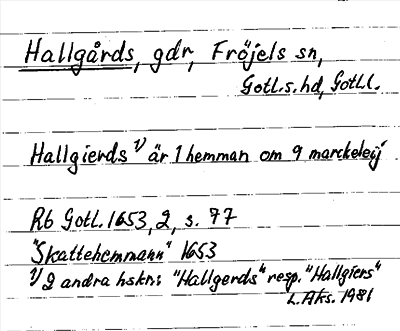 Hallgårds, gdr, Fröjels sn,
Gotl.s.hd, Gotl.l.
Hallgierds 1) är 1 hemman om 9 marckeleij
Rb Gotl. 1653, 2, s. 77
"Skattehemmann" 1653
1) 2 andra hskr: "Hallgerds" resp. "Hallgiers"
L. Aks. 1981